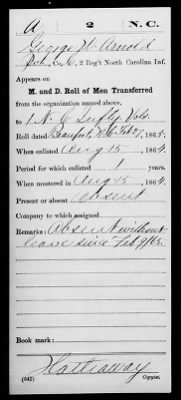 A | 2 | N.C.
George W. Arnold
Pvt., Co. G, 2 Reg't North Carolina Inf.
Appears on
M. and D. Roll of Men Transferred
from the organization named above,
to 1 N. C. Infty Vols.
Roll dated Beaufort, N.C. Feb 27, 1865.
When enlisted Aug 15, 1864.
Period for which enlisted 1 years.
When mustered in Aug 15, 1864.
Present or absent absent
Company to which assigned
Remarks: Absent without
leave since Feb 9/65.
Book mark:
Hathaway
(342) Copyist.